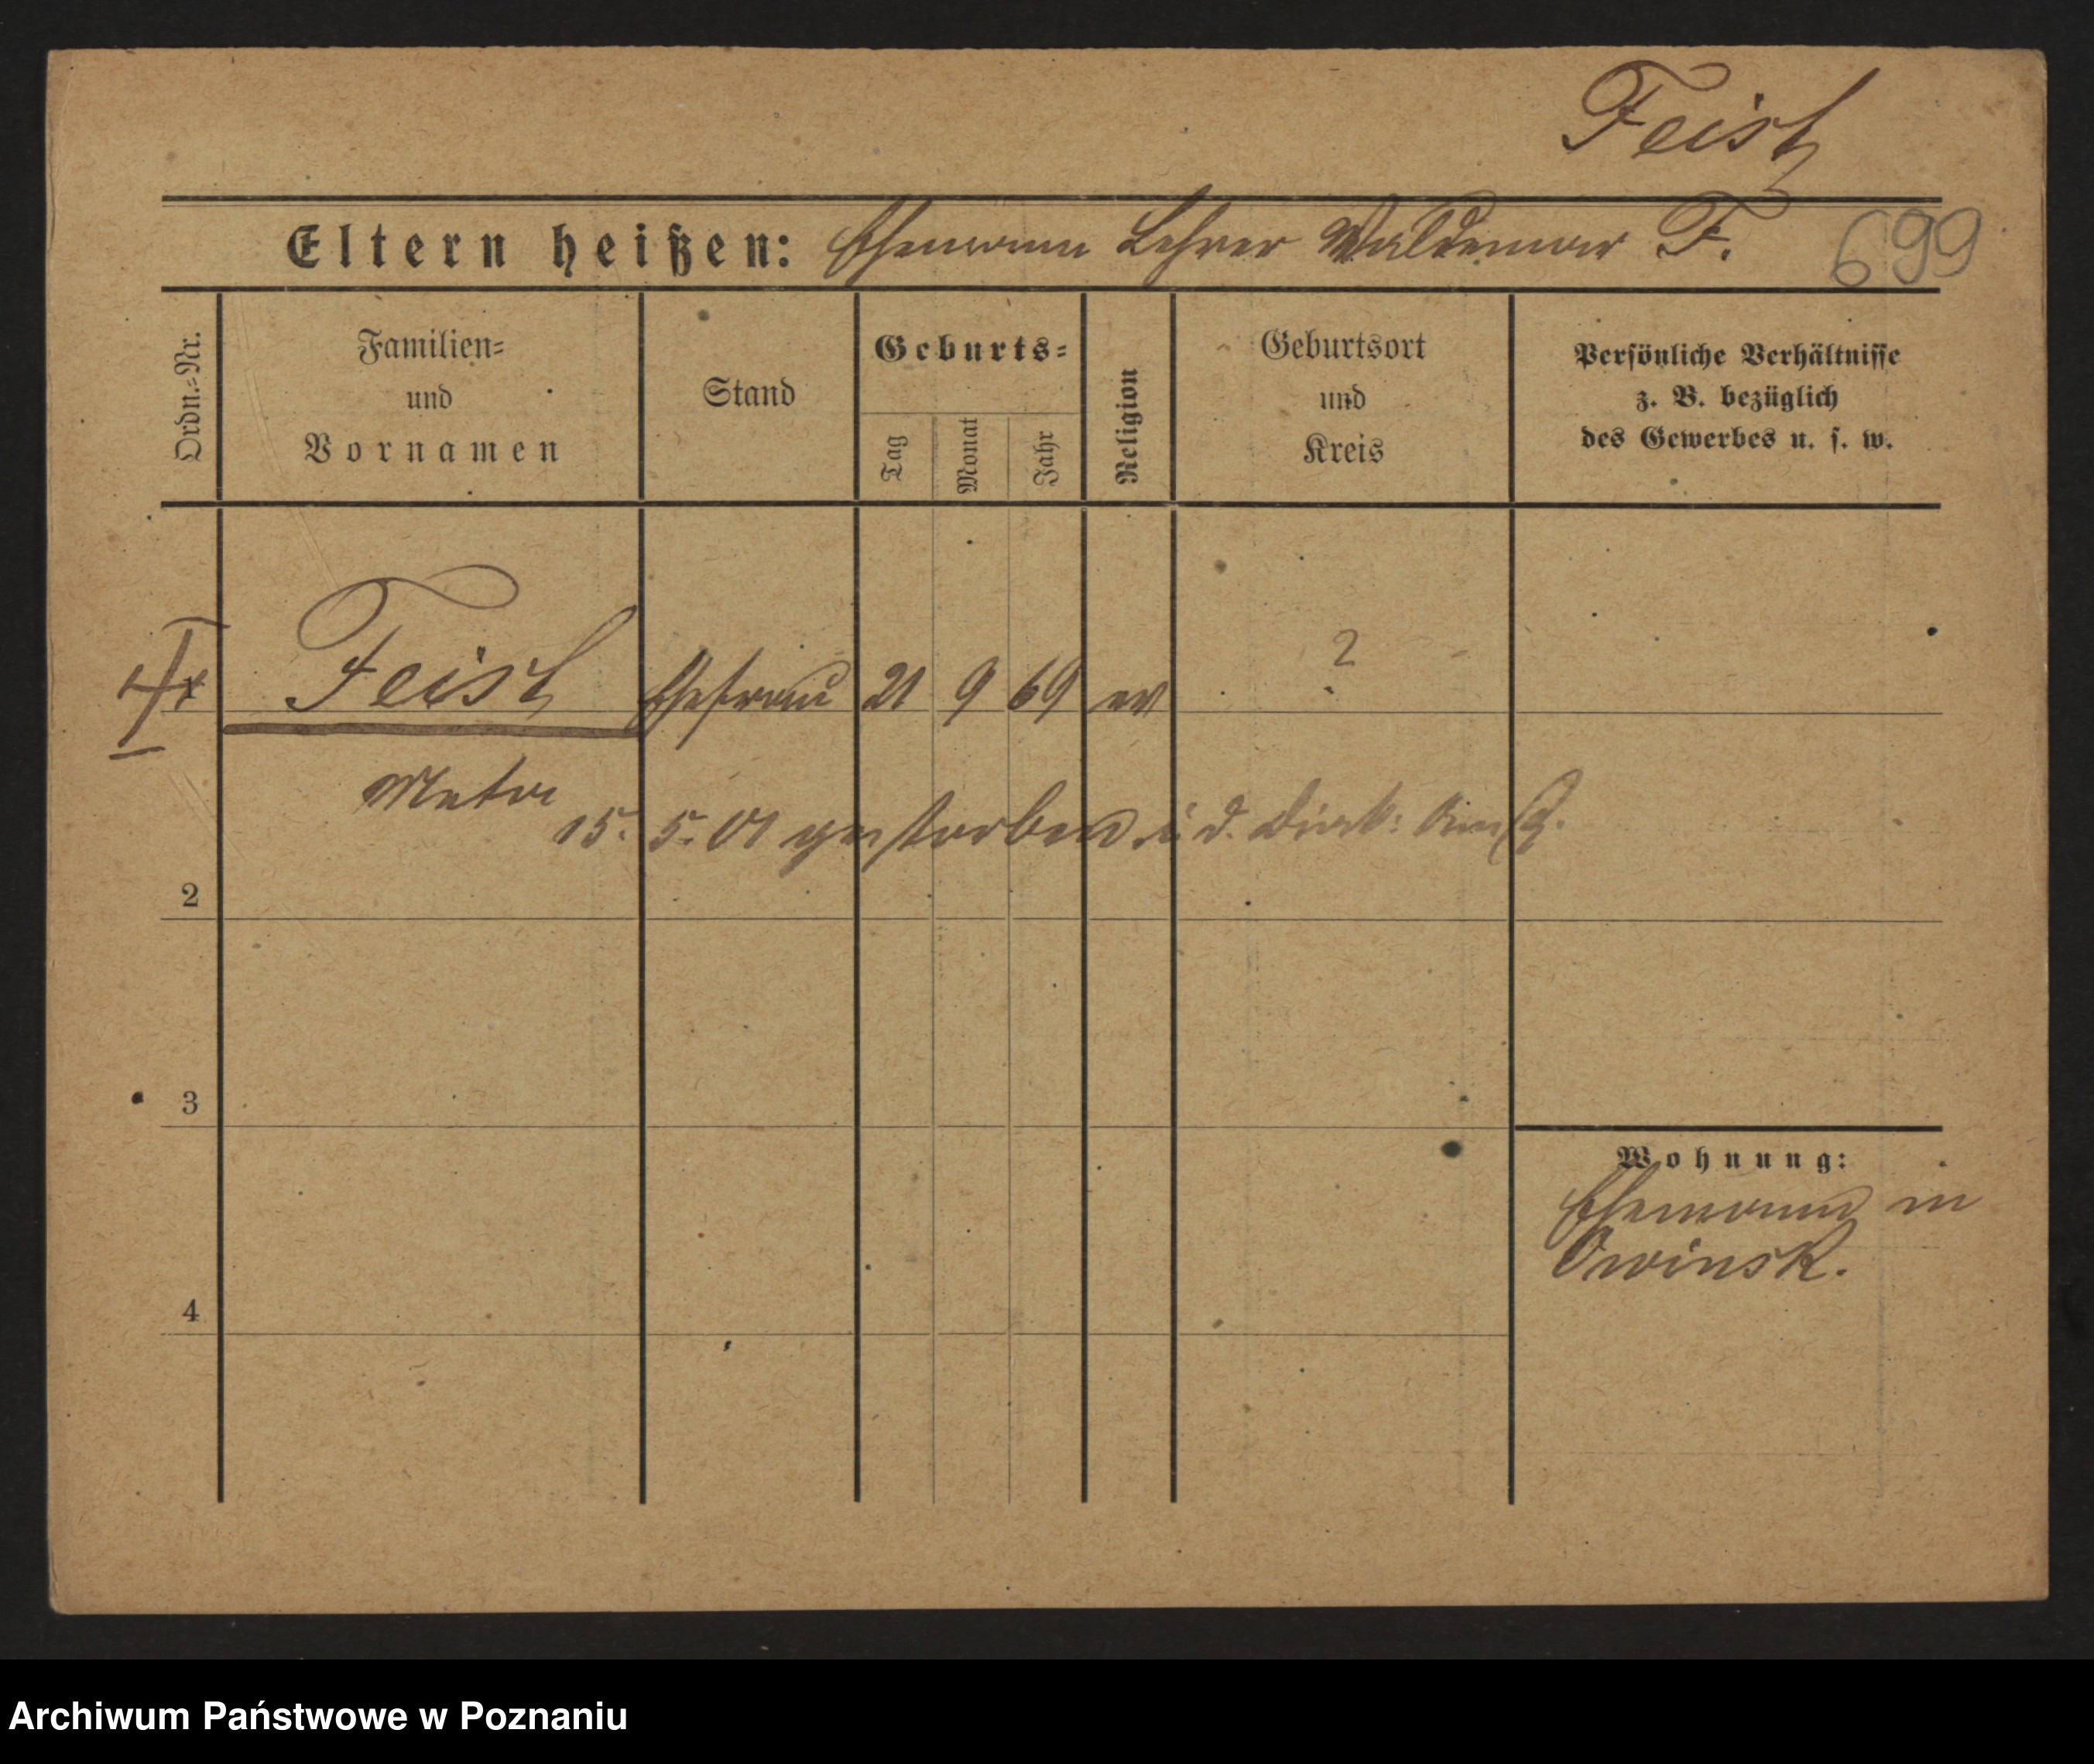 Feist
Eltern heißen: Ehemann Lehrer Waldemar F. 699
Ordn.-Nr.
Familien-
und
Vornamen
Stand
Geburts-
Tag
Monat
Jahr
Religion
Geburtsort
und
Kreis
Persönliche Verhältnisse
z. B. bezüglich
des Gewerbes u. s. w.
1 Feist Ehefrau 21 9 69 ev ?
Meta
15. 5. 01 gestorben i. d. Diak:
2
3
4
Wohnung:
Ehemann in
Owinsk.
Archiwum Państwowe w Poznaniu